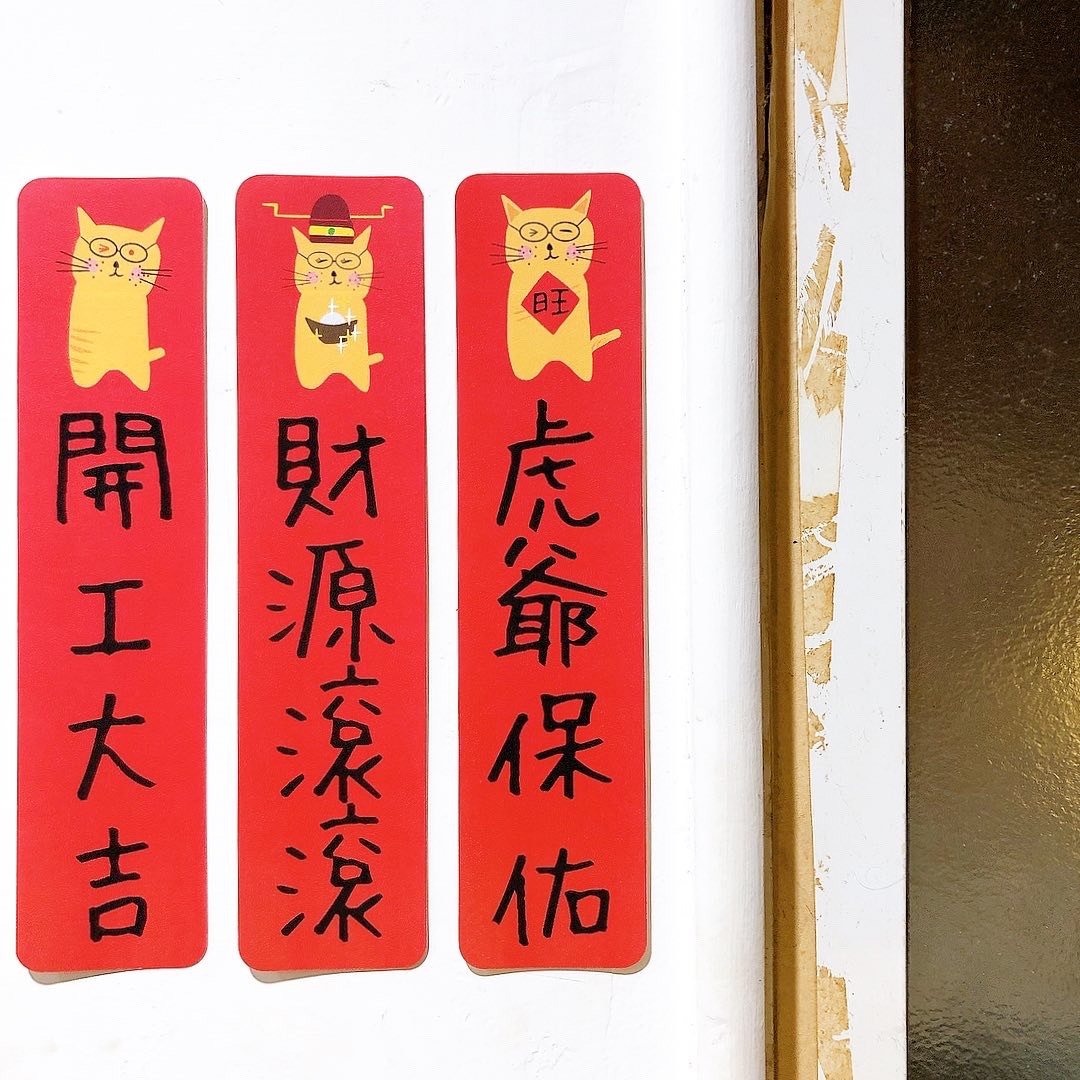 開工大吉
財源滾滾
旺
虎爺保佑